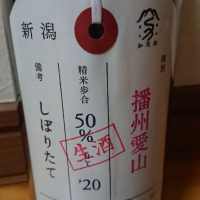 新潟
播州愛山
精米歩合
50%
生酒
'20
備考
しぼりたて